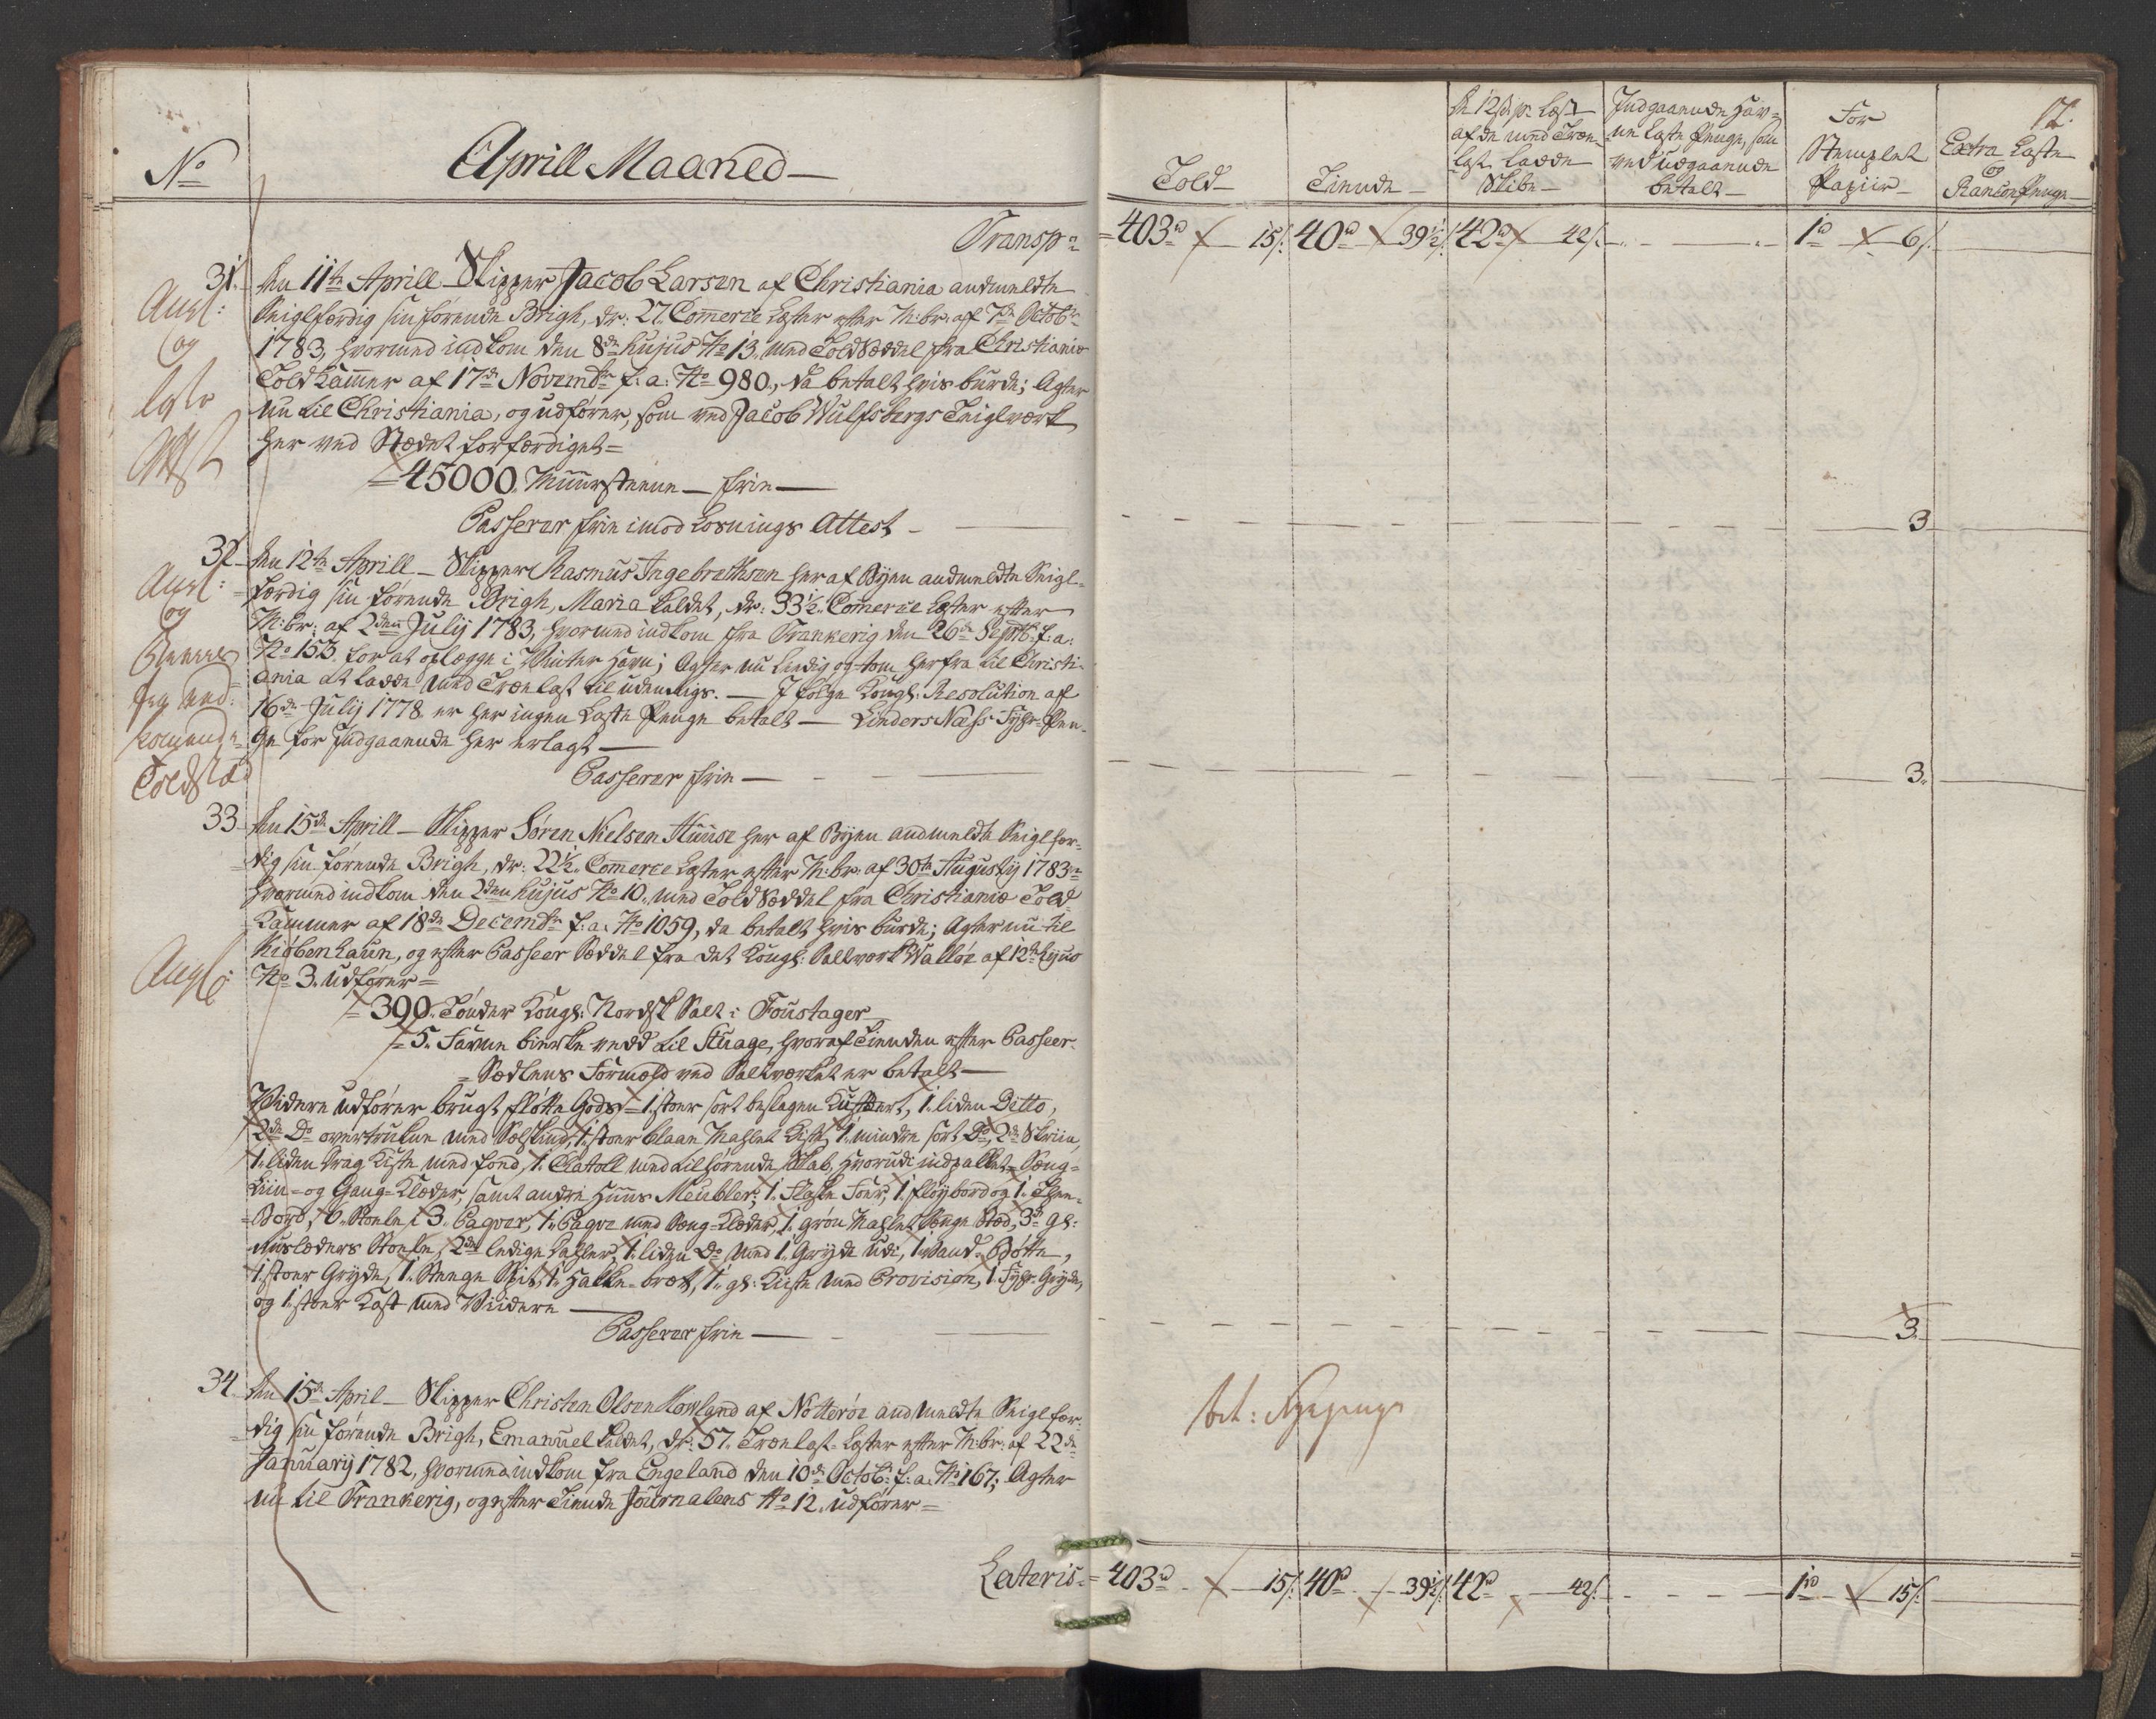 No
Aprill Maaned
Transp:
31. Den 11te Aprill Skipper Jacob Larsen af Christiania andmeldte
Seiglfærdig sin førende Brigh, dr: 27. Com̅erce Læster efter M:br: af 7de Octobr
1783, hvormed indkom den 8de hujus No 13. med Toldsæddel fra Christiania
Told Kam̅er af 17de Novembr f: a: No 980, da betalt hvis burde; Agter
nu til Christiania, og udfører, som ved Jacob Wulfsbergs Teiglværk
her ved Stædet forfærdiget =
45000. Muursteene frie
Passerer frie imod Losnings Attest
og
32 Den 12te Aprill Skipper Rasmus Ingebrethsen her af Byen andmeldte Seigl-
færdig sin førende Brigh, Maria kaldet, dr: 33½. Com̅erce Læster efter
M:br: af 2den Julij 1783, hvormed indkom fra Frankerig den 26de Septb: f: a:
No 155. for at oplægge i Vinter Havn; Agter nu ledig og tom herfra til Christi-
ania at lade med Trælast til udenrigs. I følge Kongl: Resolution af
16de Julij 1778 er her ingen Læste Penge betalt Linders Næss Fyhr-Pen-
ge for Indgaaende her erlagt
Passerer frie
og
Toldstæd
33 Den 15de Aprill Skipper Søren Nielsen Huuse her af Byen andmeldte Seiglfær-
dig sin førende Brigh, dr: 22½. Com̅erce Læster efter M:br: af 30te Augustij 1783
hvormed indkom den 2den hujus No 10. med Toldsæddel fra Christiania Told
Kammer af 18de Decembr f: a: No 1059, da betalt hvis burde; Agter nu til
Kiøbenhaun, og efter Passeer Sæddel fra det Kongl: Saltværk Walløe af 12te hujus
No 3. udfører =
390. Tønder Kongl: Nordsk Salt i Foustager
5. Favne birke vedd til Stuage, hvoraf Tienden efter Passeer-
Sædlens Formæld ved Saltværket er betalt
Widere udfører brugt flötte Gods = 1. stoer sort beslagen Kuffert, 1. liden Ditto,
2de Do overtrukne med Sælskind, 1. stoer blaae Mahlet Kiste, 1. mindre sort Do, 2de Skriin,
1. liden drag Kiste med fond, 1. Chatoll med tilhørende Skab, hvorudi indpakket = Seng-
Liin- og Gang-Klæder, samt andre Huus Meubler; 1. Flaske Foer, 1. fløybord og 1. Thee-
Bord, 6. Stoele i 3. Paqver, 1. Paqve med Seng-Klæder, 1. grøn Mahlet Senge Stæd, 3de gl:
ruslæders Stoele, 2de ledige Kahler, 1. liden Do med 1. Gryde udi, 1. Vand-Bøtte,
1. stoer Gryde, 1. Stenge Spid, 1. Hakke-bræt, 1. gl: Kiste med Provision, 1. Fyhr-Gryde,
og 1. stoer Kost med Viidere
Passerer frie
34 Den 15de April Skipper Christen Olsen Howland af Nøtterøe andmeldte Seiglfær-
dig sin førende Brigh, Emanuel kaldet, dr: 57. Trælast-Læster efter M:br: af 22de
Januarij 1782, hvormed indkom fra Engeland den 10de Octob: f: a: No 167; Agter
nu til Frankerig, og efter Tiende Journalens No 12. udfører =
Lateris
17.
Told
Tiende
De 12 s. pr. Læst
af de med Træe-
last ladde
Skibe
Indgaaende Hav-
ne Læste Penge, som
ved udgaaende
betalt
For
Stemplet
Papiir
Extra Læste
og
Rancon Penge
403rd 15s. 40rd 39½s. 42rd 42s. 1rd 6s.
3
3.
3.
403rd 15s. 40rd 39½s. 42rd 42s. 1rd 15s.